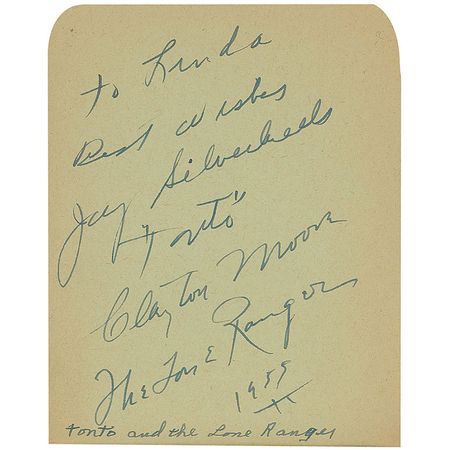 To Linda
Best Wishes
Jay Silverheels
"Tonto"
Clayton Moore
The Lone Ranger
1955
Tonto and the Lone Ranger